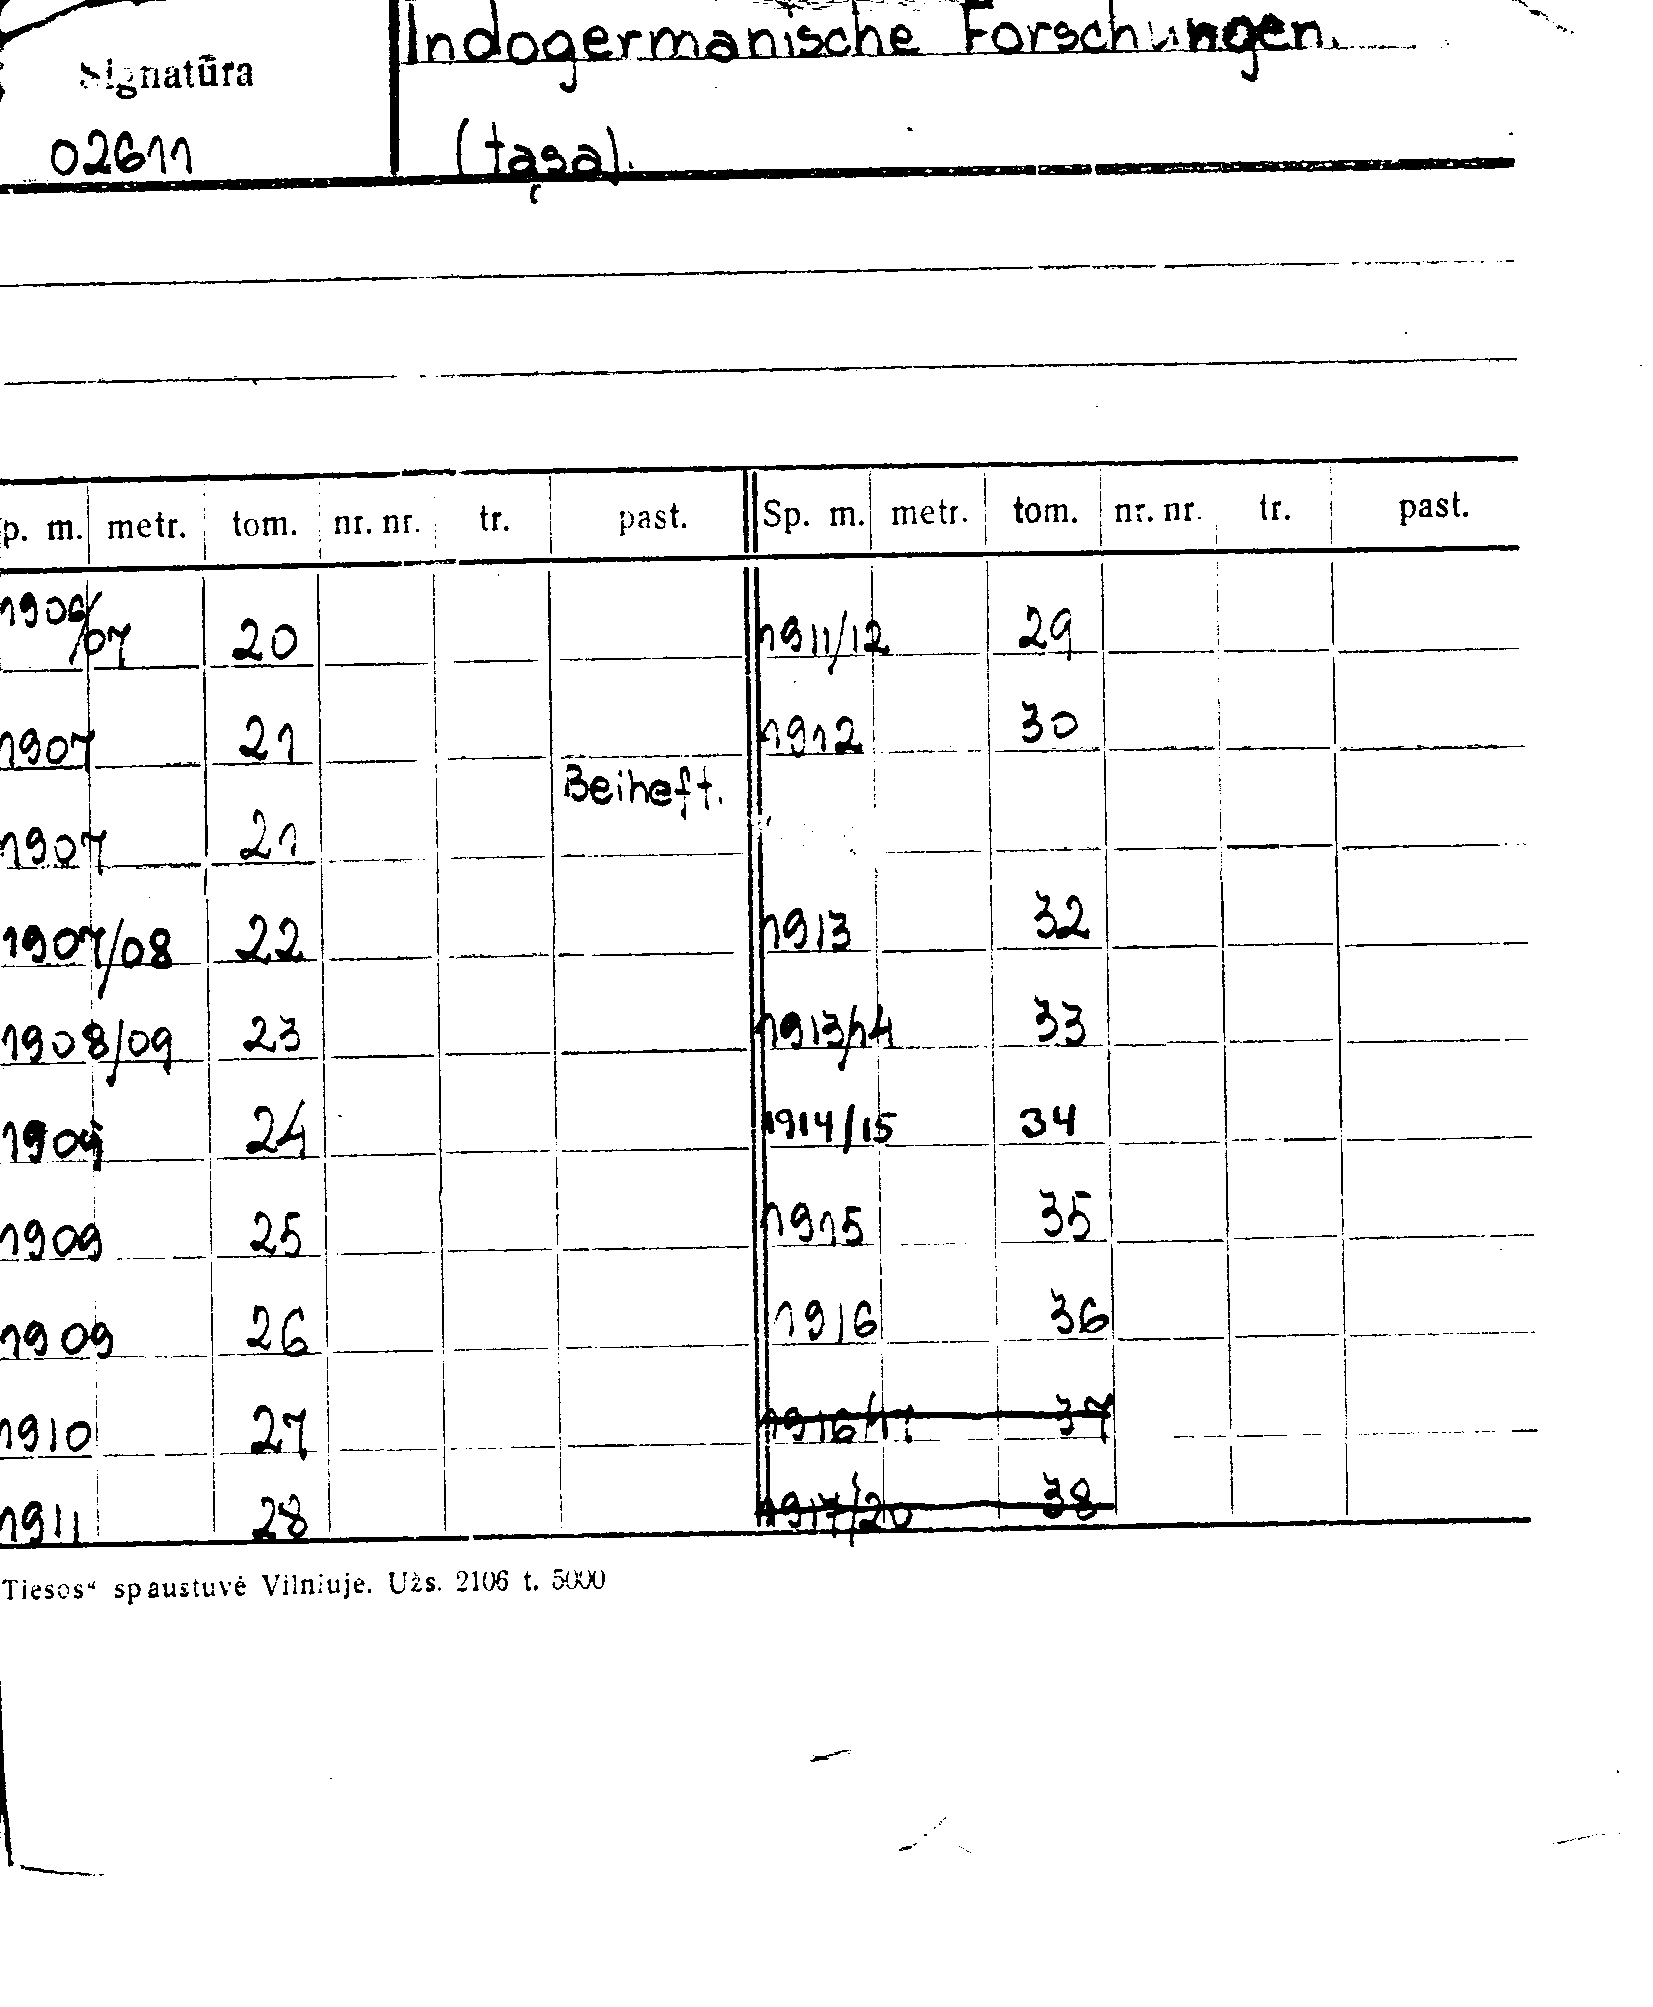 Indogermanische Forschungen.
Signatūra
02611
(tąsa).
p. m. metr. tom. nr. nr. tr. past. Sp. m. metr. tom. nr. nr. tr. past.
1906/07 20 1911/12 29
1907 21 1912 30
Beiheft.
1907 21
1907/08 22 1913 32
1908/09 23 1913/14 33
1909 24 1914/15 34
1909 25 1915 35
1909 26 1916 36
1910 27 1916/17 37
1911 28 1917/20 38
Tiesos“ spaustuvė Vilniuje. Užs. 2106 t. 5000